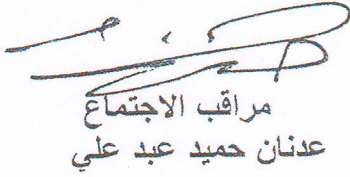 مراقب الاجتماع
عدنان حميد عبد علي